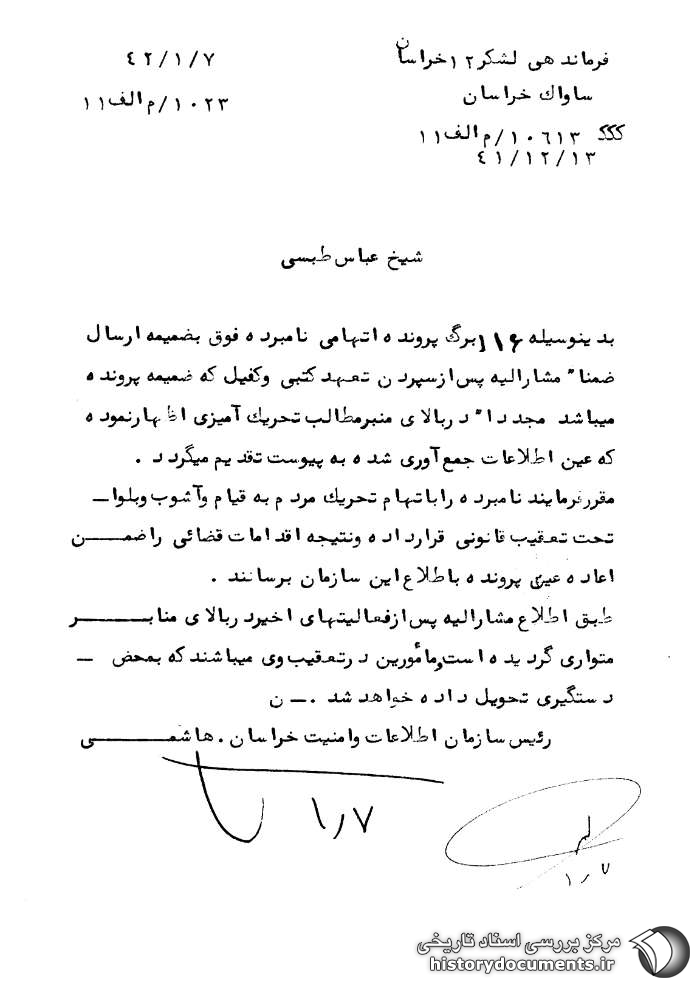 فرماندهی لشکر ۱۲ خراسان
ساواك خراسان
۴۲/۱/۷
۱۰۲۳/م الف ۱۱
ککک ۱۰۶۱۳/م الف ۱۱
۴۱/۱۲/۱۳
شیخ عباس طبسی
بدینوسیله ۱۱۶ برگ پرونده اتهامی نامبرده فوق بضمیمه ارسال
ضمنا" مشارالیه پس از سپردن تعهد کتبی وکفیل که ضمیمه پرونده
میباشد مجددا" دربالای منبر مطالب تحریك آمیزی اظهارنموده
که عین اطلاعات جمع آوری شده به پیوست تقدیم میگردد .
مقررفرمایند نامبرده راباتهام تحریك مردم به قیام وآشوب وبلواـ
تحت تعقیب قانونی قرارداده ونتیجه اقدامات قضائی راضمـــن
اعاده عین پرونده باطلاع این سازمان برسانند .
طبق اطلاع مشارالیه پس ازفعالیتهای اخیردربالای منابـــــر
متواری گردیده است ومأمورین درتعقیب وی میباشند که بمحض ـ
دستگیری تحویل داده خواهد شد .ـ ن
رئیس سازمان اطلاعات وامنیت خراسان . هاشمـــــــی
۱٫۷
۱٫۷
مرکز بررسی اسناد تاریخی
historydocuments.ir